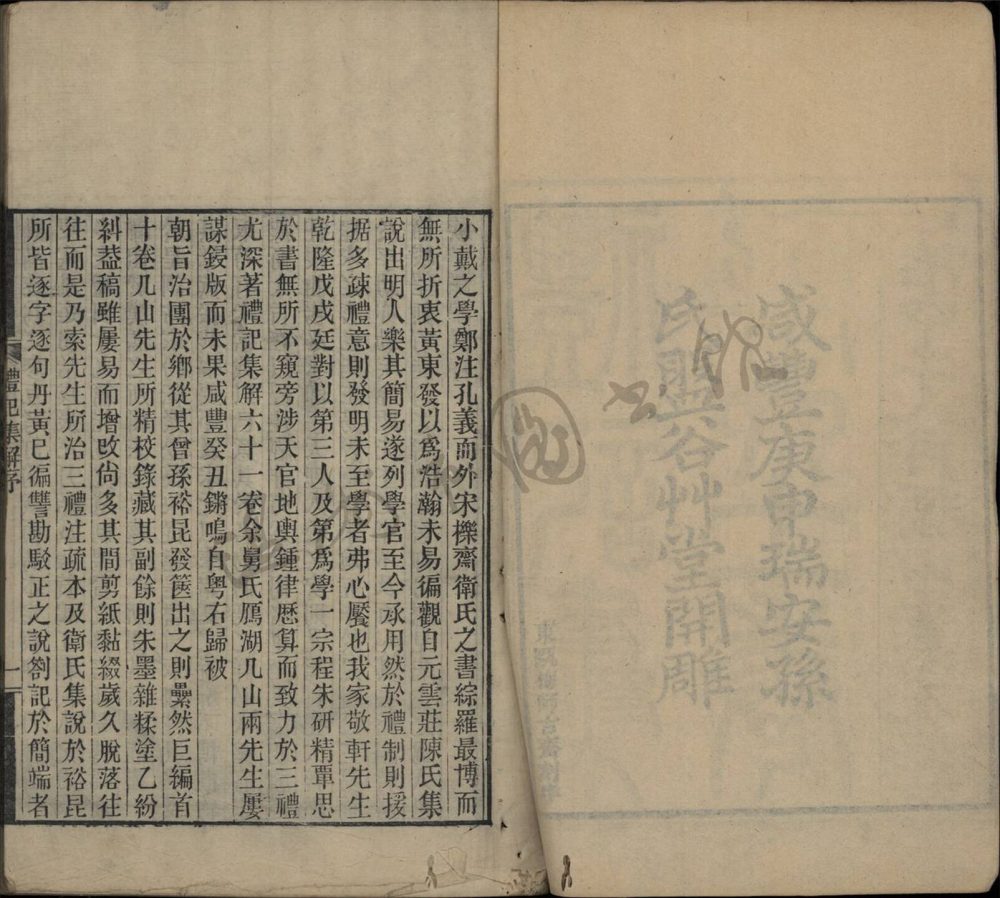 咸豐庚申瑞安孫
氏盤谷艸堂開雕
小戴之學鄭注孔義而外宋櫟齋衛氏之書綜羅最博而
無所折衷黃東發以爲浩瀚未易徧觀自元雲莊陳氏集
說出明人樂其簡易遂列學官至今承用然於禮制則援
据多疎禮意則發明未至學者弗心饜也我家敬軒先生
乾隆戊戌廷對以第三人及第爲學一宗程朱研精覃思
於書無所不窺旁涉天官地輿鍾律厯算而致力於三禮
尤深著禮記集解六十一卷余舅氏鴈湖几山兩先生屢
謀鋟版而未果咸豐癸丑鏘鳴自粵右歸被
朝旨治團於鄉從其曾孫裕昆發篋出之則纍然巨編首
十卷几山先生所精校錄藏其副餘則朱墨雜糅塗乙紛
糾葢稿雖屢易而增改尙多其間剪紙黏綴歲久脫落往
往而是乃索先生所治三禮注疏本及衛氏集說於裕昆
所皆逐字逐句丹黃已徧讐勘駁正之說劄記於簡端者
禮記集解序
一